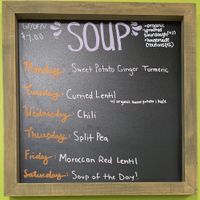 GF/DF/V
$7.00
SOUP
•organic
sprouted
sourdough(+1)
•homemade
croutons(+.5)
Monday: Sweet Potato Ginger Turmeric
Tuesday: Curried Lentil
w/ organic sweet potato & kale
Wednesday: Chili
Thursday: Split Pea
Friday: Moroccan Red Lentil
Saturday: Soup of the Day!